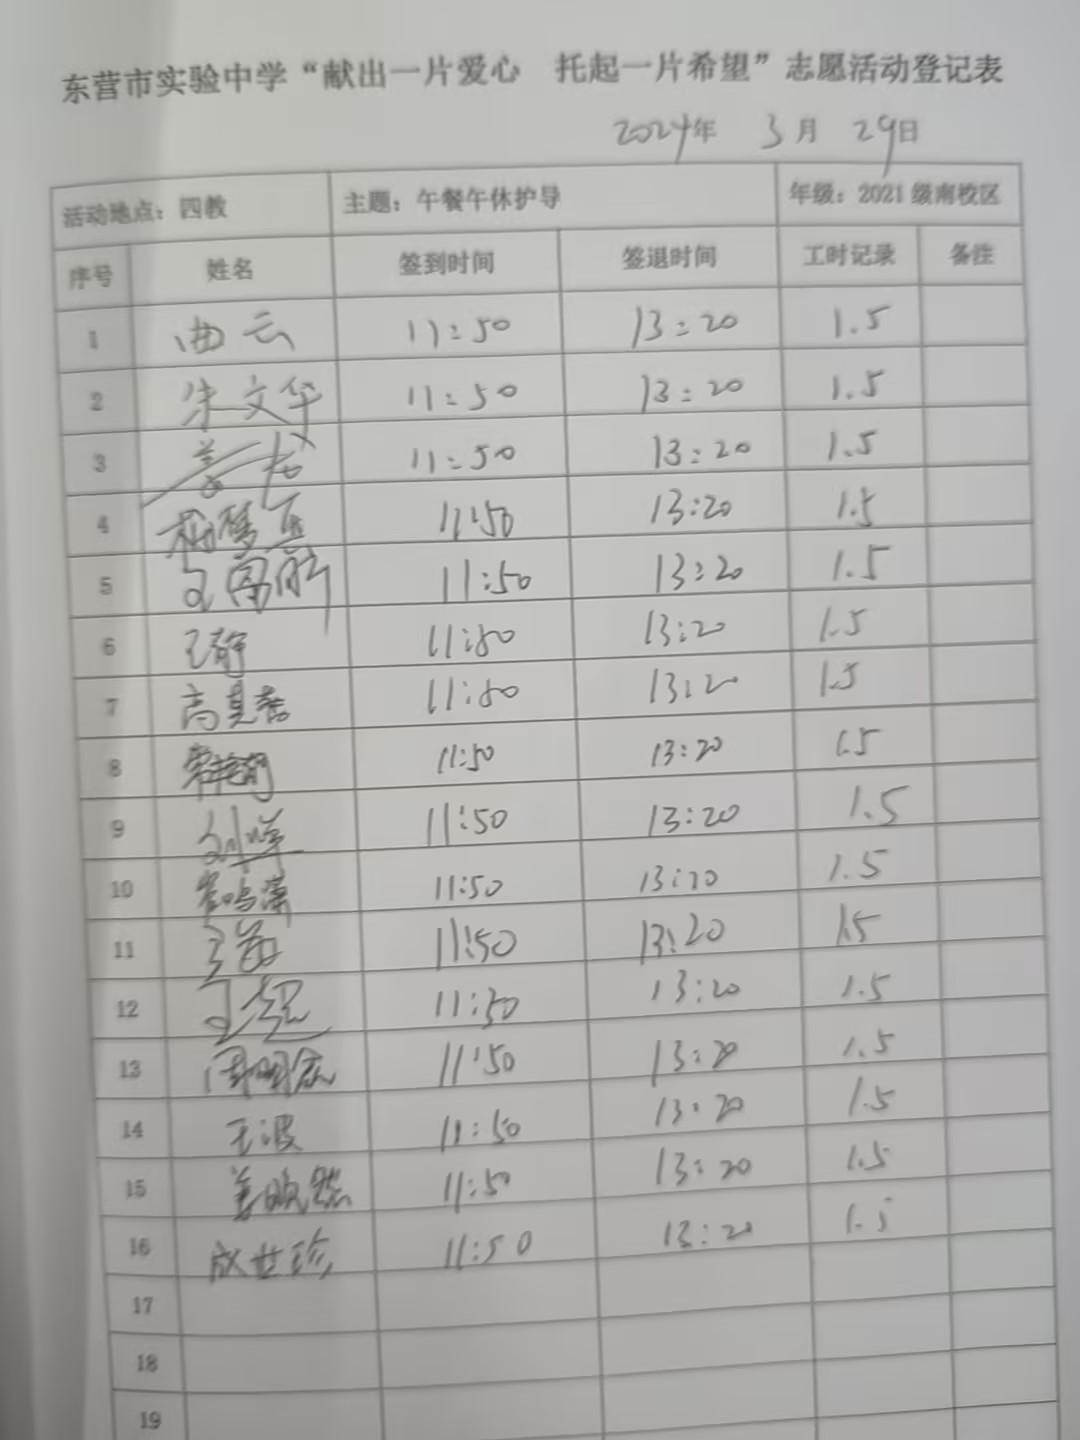 东营市实验中学“献出一片爱心　托起一片希望”志愿活动登记表
2024年 3月 29日
活动地点：四教 主题：午餐午休护导 年级：2021级南校区
序号 姓名 签到时间 签退时间 工时记录 备注
1 曲云 11:50 13:20 1.5
2 朱文华 11:50 13:20 1.5
3 姜龙 11:50 13:20 1.5
4 11:50 13:20 1.5
5 11:50 13:20 1.5
6 王静 11:50 13:20 1.5
7 11:50 13:20 1.5
8 11:50 13:20 1.5
9 11:50 13:20 1.5
10 11:50 13:20 1.5
11 11:50 13:20 1.5
12 王超 11:50 13:20 1.5
13 11:50 13:20 1.5
14 王波 11:50 13:20 1.5
15 11:50 13:20 1.5
16 成世珍 11:50 13:20 1.5
17
18
19